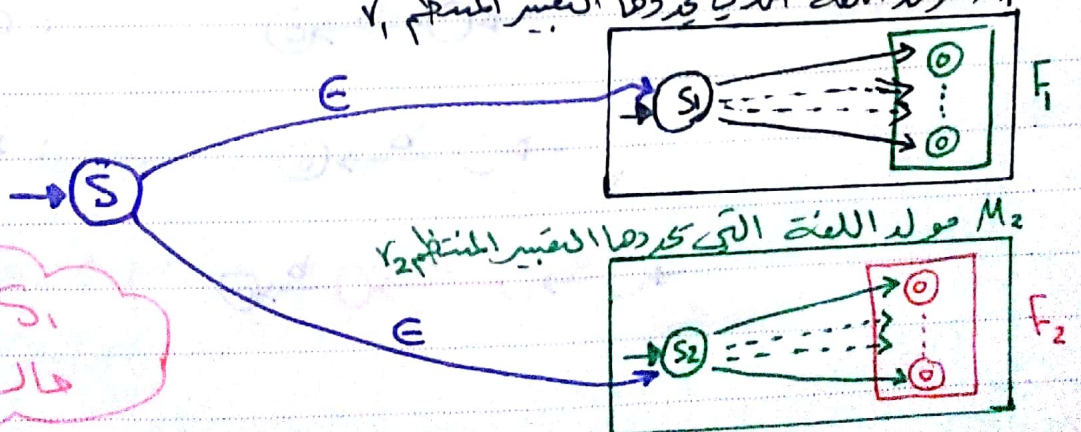 M₁ مولد اللغة التي يحددها التعبير المنتظم r₁
ϵ
S₁
F₁
S
M₂ مولد اللغة التي يحددها التعبير المنتظم r₂
ϵ
S₂
F₂
S₁